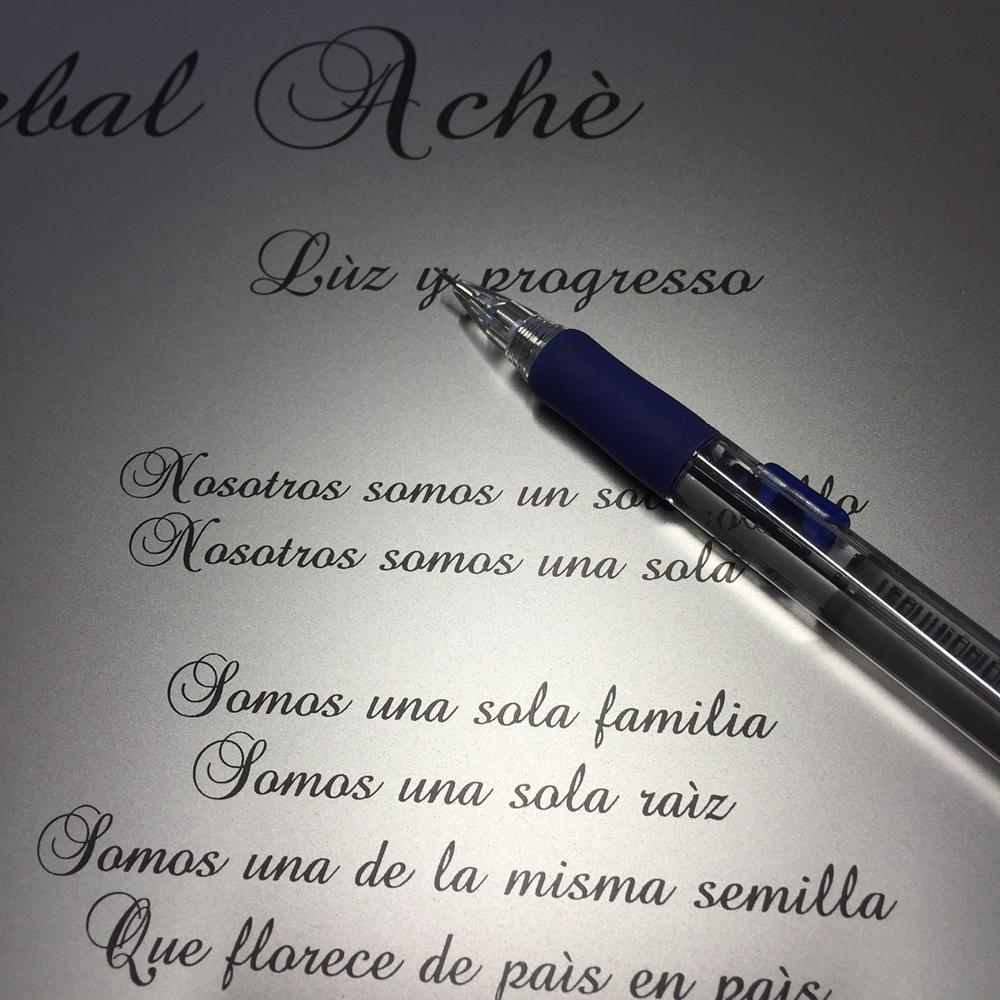 ebal Achè
Lùz y progresso
Nosotros somos un
Nosotros somos una sola
Somos una sola familia
Somos una sola raìz
Somos una de la misma semilla
Que florece de paìs en paìs